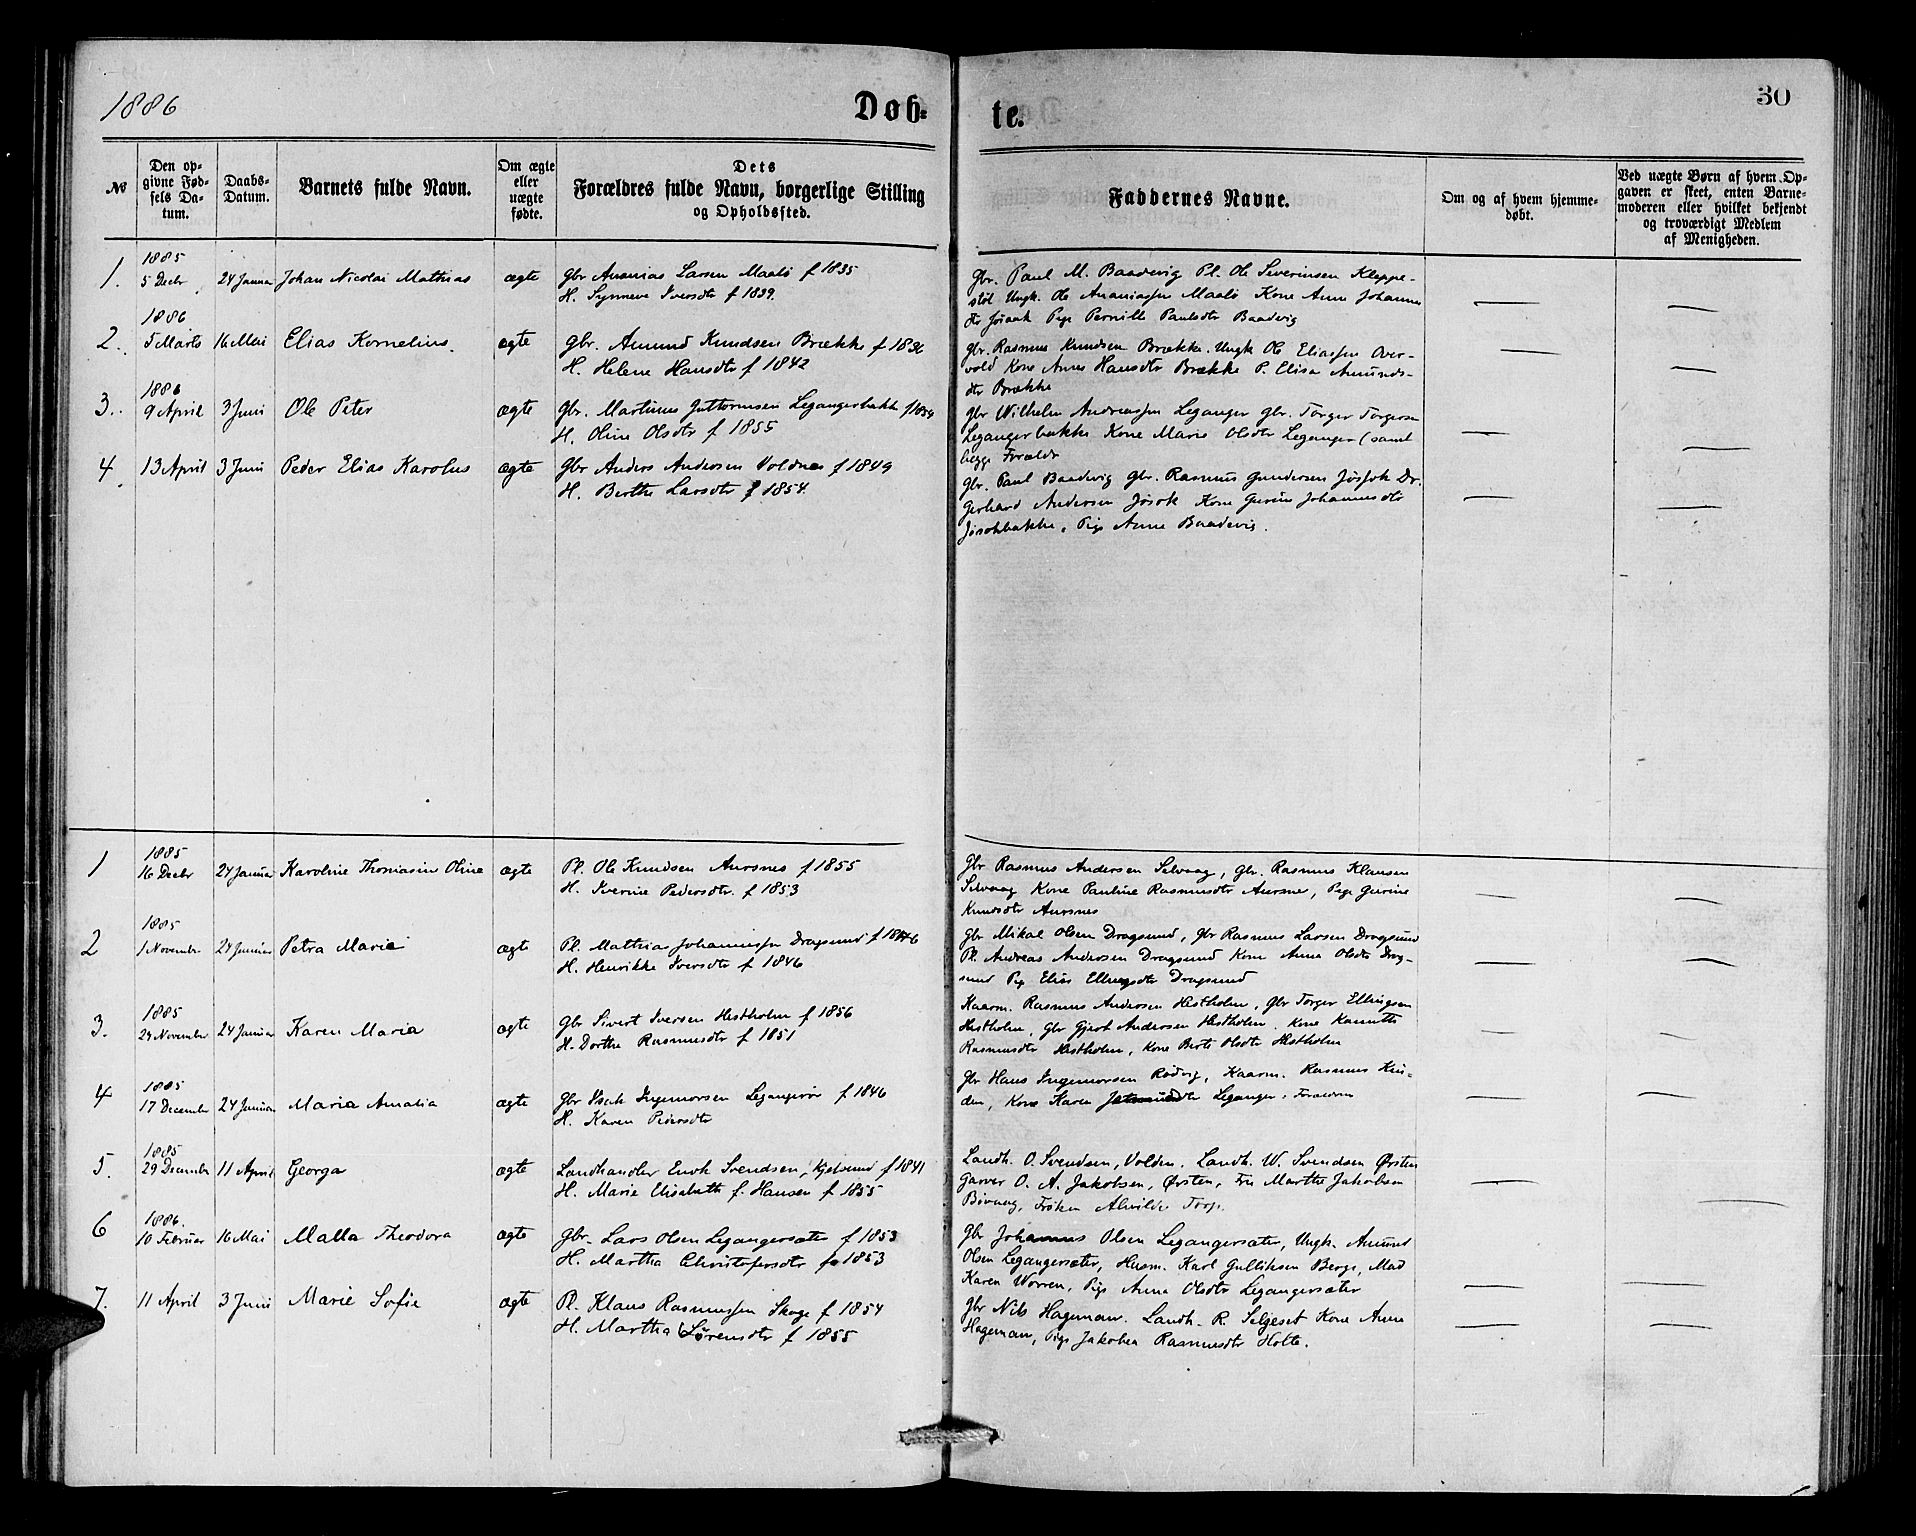 1886
Døb-
te.
30
№
Den op-
givne Fød-
sels Da-
tum.
Daabs-
Datum.
Barnets fulde Navn.
Om ægte
eller
uægte
fødte.
Dets
Forældres fulde Navn, borgerlige Stilling
og Opholdssted.
Faddernes Navne.
Om og af hvem hjemme-
døbt.
Ved uægte Børn af hvem Op-
gaven er skeet, enten Barne-
moderen eller hvilket bekjendt
og troværdigt Medlem
af Menigheden.
1885
1. 5 Decbr 24 Januar Johan Nicolai Mathias ægte Gbr Ananias Larsen Maalø f 1835
H. Synneve Iversdtr f 1839.
Gbr. Paul M. Baadevig Pl. Ole Severinsen Kleppe-
støl Ungk. Ole Ananiassen Maalø Kone Anne Johannes
dtr Jøsaak Pige Pernille Paulsdtr Baadevig
1886
2. 5 Marts 16 Mai Elias Kornelius. ægte Gbr. Amund Knudsen Brække f 1836
H. Helene Hansdtr f 1842
Gbr. Rasmus Knudsen Brække. Ungk Ole Eliassen Over-
vold Kone Anne Hansdtr Brække P. Elisa Amunds-
dtr Brække
1886
3. 9 April 3 Juni Ole Peter ægte Gbr. Martinus Guttormsen Legangerbakke
H. Oline Olsdtr f 1855
Gbr Wilhelm Andreassen Leganger Gbr. Torger Torgersen
Legangerbakke Kone Marie Olsdtr Leganger (samt
begge Forældr
4. 13 April 3 Juni Peder Elias Karolus ægte Gbr Anders Andersen Voldnes f 1849
H. Berthe Larsdtr f 1854.
Gbr. Paul Baadevig Gbr. Rasmus Gundersen Jøsok Dr.
Gerhard Andersen Jøsok Kone Gurine Johannesdtr
Jøsokbakke, Pige Anne Baadevig.
1885
1 16 Decbr 24 Januar Karoline Thomasine Oline ægte Pl. Ole Knudsen Aursnes f 1855
H. Iverine Pedersdtr. f 1853
Gbr Rasmus Andersen Selvaag, Gbr. Rasmus Klausen
Selvaag Kone Pauline Rasmusdtr Aursnes, Pige Gurine
Knudsdtr Aursnes
1885
2 1 November 24 Januar Petra Marie ægte Pl. Mathias Johannessen Dragsund
H. Henrikke Iversdtr f 1846
Gbr Mikal Olsen Dragsund, Gbr Rasmus Larsen Dragsund
Pl. Andreas Andersen Dragsund Kone Anna Olsdtr Drag-
sund Pig Elias Ellingsdtr Dragsund
1885
3. 24 November 24 Januar Karen Maria ægte Gbr Sivert Iversen Hestholm f 1856
H. Dorthe Rasmusdtr f 1851
Kaarm. Rasmus Andersen Hestholm, Gbr Torger Ellingsen
Hestholm, Gbr Gjert Andersen Hestholm. Kone
Rasmusdtr Hestholm, Kone Berte Olsdtr Hestholm
1885
4 17 December 24 Januar Maria Amalia ægte Gbr Isak Ingemorsen Legangerør f 1846
H. Karen Pedersdtr
Gbr Hans Ingemorsen Rødvig, Kaarm. Rasmus
Kone Karen Leganger.
1885
5. 29 December 11 April Georga ægte Landhandler Enok Svendsen, Kjelsund f 1841
H. Marie Elisabeth f. Hansen f 1855
Landh. O. Svendsen, Volden. Landh. W. Svendsen Ørsten
Garver O. A. Jakobsen, Ørsten, Fru Marthe Jakobsen
Frøken Alvilde Torp.
1886.
6 10 Februar 16 Mai Malla Theodora ægte Gbr. Lars Olsen Legangersæter f 1853
H. Martha Christofersdtr f 1853
Gbr Johannes Olsen Legangersæter, Ungk. Amund
Olsen Legangersæter, Husm. Karl Gulliksen Berge, Mad
Karen Worren, Pige Anna Olsdtr Legangersæter
7. 11 April 3 Juni Marie Sofie ægte Pl. Klaus Rasmussen Skoge f 1854
H. Martha Sørensdtr f 1855
Gbr Nils Hageman. Landh. R. Seljeset Kone Anne
Hageman, Pige Jakobea Rasmusdtr Holte.